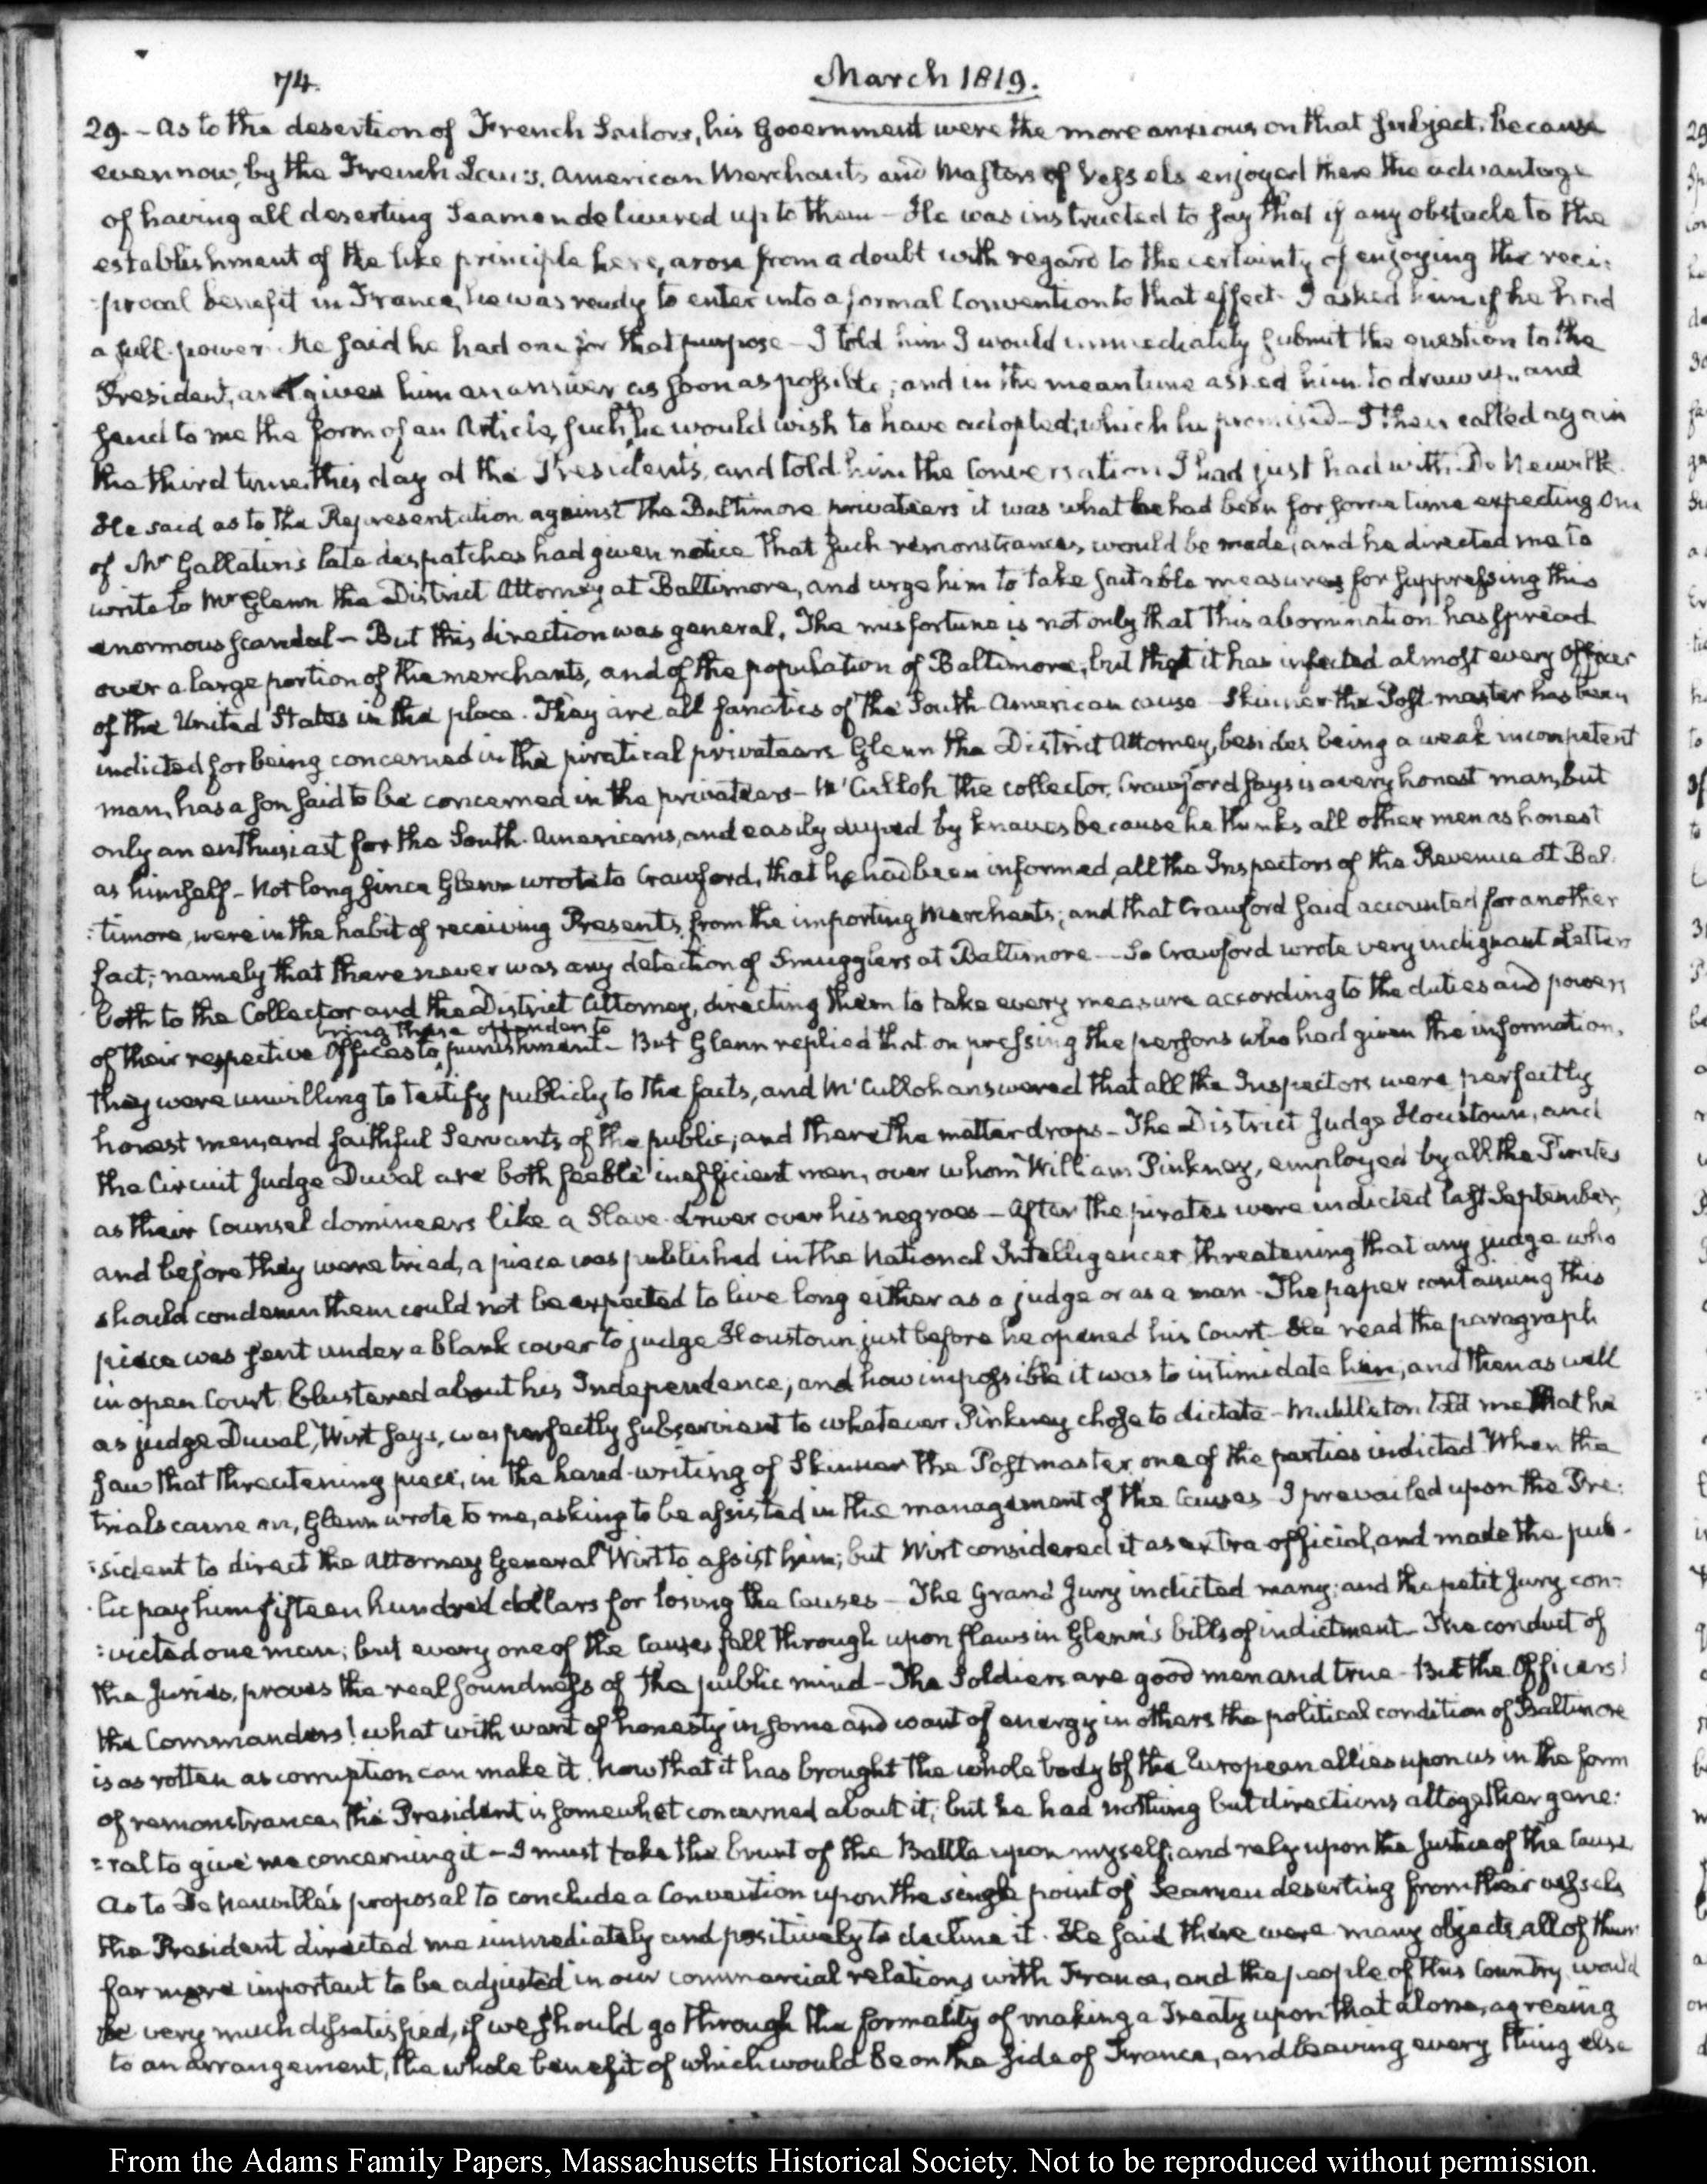 74.
March 1819.
29. - As to the desertion of French Sailors, his Government were the more anxious on that subject, because
even now, by the French Laws, American Merchants and Masters of Vessels enjoyed there the advantage
of having all deserting Seamen delivered up to them - He was instructed to say that if any obstacle to the
establishment of the like principle here, arose from a doubt with regard to the certainty of enjoying the reci:
:procal benefit in France, he was ready to enter into a formal Convention to that effect - I asked him if he had
a full power. He said he had one for that purpose - I told him I would immediately submit the question to the
President, and given him an answer as soon as possible; and in the meantime asked him to draw up, and
send to me the form of an Article, such as he would wish to have adopted; which he promised - I then called again
the third time this day at the President's, and told him the Conversation I had just had with De Neuville.
He said as to the Representation against the Baltimore privateers it was what he had been for some time expecting One
of Mr Gallatin's late despatches had given notice that such remonstrances would be made; and he directed me to
write to Mr Glenn the District Attorney at Baltimore, and urge him to take suitable measures for suppressing this
enormous scandal - But this direction was general. The misfortune is not only that this abomination has spread
over a large portion of the merchants, and of the population of Baltimore, but that it has infected almost every Officer
of the United States in the place. They are all fanatics of the South-American cause - Skinner the Post master has been
indicted for being concerned in the piratical privateers - Glenn the District Attorney, besides being a weak incompetent
man, has a son said to be concerned in the privateers - McCulloh the collector, Crawford says is a very honest man, but
only an enthusiast for the South-Americans, and easily duped by knaves because he thinks all other men as honest
as himself - Not long since Glenn wrote to Crawford, that he had been informed, all the Inspectors of the Revenue at Bal:
:timore, were in the habit of receiving Presents, from the importing Merchants; and that Crawford said accounted for another
fact; namely that there never was any detection of Smugglers at Baltimore - So Crawford wrote very indignant Letters
both to the Collector and the District Attorney, directing them to take every measure according to the duties and powers
bring these offenders to
of their respective Offices to punishment - But Glenn replied that on pressing the persons who had given the information,
they were unwilling to testify publicly to the facts, and McCulloh answered that all the Inspectors were perfectly
honest men, and faithful Servants of the public; and there the matter drops - The District Judge Houstoun, and
the Circuit Judge Duval are both feeble inefficient men, over whom William Pinkney, employed by all the Pirates
as their Counsel domineers like a Slave-driver over his negroes - After the pirates were indicted last September,
and before they were tried, a piece was published in the National Intelligencer threatening that any judge who
should condemn them could not be expected to live long either as a judge or as a man - The paper containing this
piece was sent under a blank cover to judge Houstoun just before he opened his Court - He read the paragraph
in open Court blustered about his Independence, and how impossible it was to intimidate him; and then as well
as judge Duval, Wirt says, was perfectly subservient to whatever Pinkney chose to dictate - Middleton told me that he
saw that threatening piece, in the hand-writing of Skinner the Postmaster one of the parties indicted When the
trials came on, Glenn wrote to me, asking to be assisted in the management of the Causes - I prevailed upon the Pre:
:sident to direct the Attorney General Wirt to assist him; but Wirt considered it as extra-official, and made the pub-
lic pay him fifteen hundred dollars for losing the Causes - The Grand Jury indicted many; and the petit Jury con:
:victed one man; but every one of the Causes fell through upon flaws in Glenn's bills of indictment - The conduct of
the Juries, proves the real soundness of the public mind - The Soldiers are good men and true - But the Officers!
the Commanders! what with want of honesty in some and want of energy in others the political condition of Baltimore
is as rotten as corruption can make it. Now that it has brought the whole body of the European allies upon us in the form
of remonstrances, the President is somewhat concerned about it; but he had nothing but directions altogether gene:
:ral to give me concerning it - I must take the brunt of the Battle upon myself; and rely upon the Justice of the Cause
As to De Neuville's proposal to conclude a Convention upon the single point of Seamen deserting from their vessels
the President directed me immediately and positively to decline it. He said there were many objects, all of them
far more important to be adjusted in our commercial relations with France, and the people of this Country would
be very much dissatisfied, if we should go through the formality of making a Treaty upon that alone, agreeing
to an arrangement, the whole benefit of which would be on the side of France, and leaving every thing else
From the Adams Family Papers, Massachusetts Historical Society. Not to be reproduced without permission.